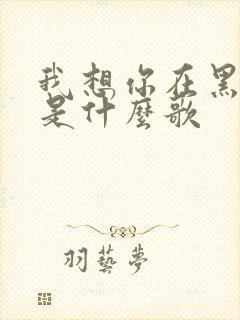 我想你在黑
是什麼歌
羽藝夢